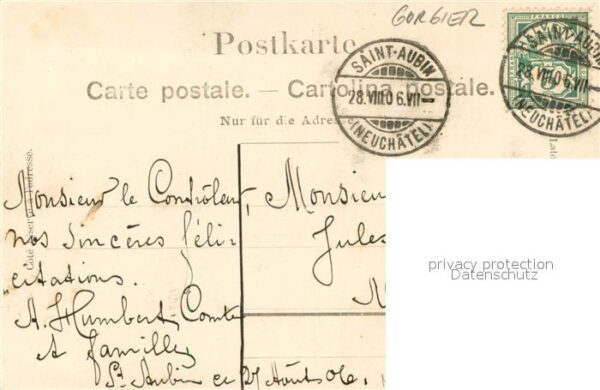 GORGIER
Postkarte
Carte postale. — Cartolina postale.
Nur für die Adresse
SAINT-AUBIN
28.VIII.06.VII—
(NEUCHÂTEL)
FRANCO
SAINT-AUBIN
28.VIII.06.VII—
(NEUCHÂTEL)
Côté réservé à l'adresse.
Monsieur le Contrôleur,
nos sincères féli-
citations.
A. Humbert-Comte
& famille
St Aubin ce 27 Août 06.
Monsieur
Jules
privacy protection
Datenschutz